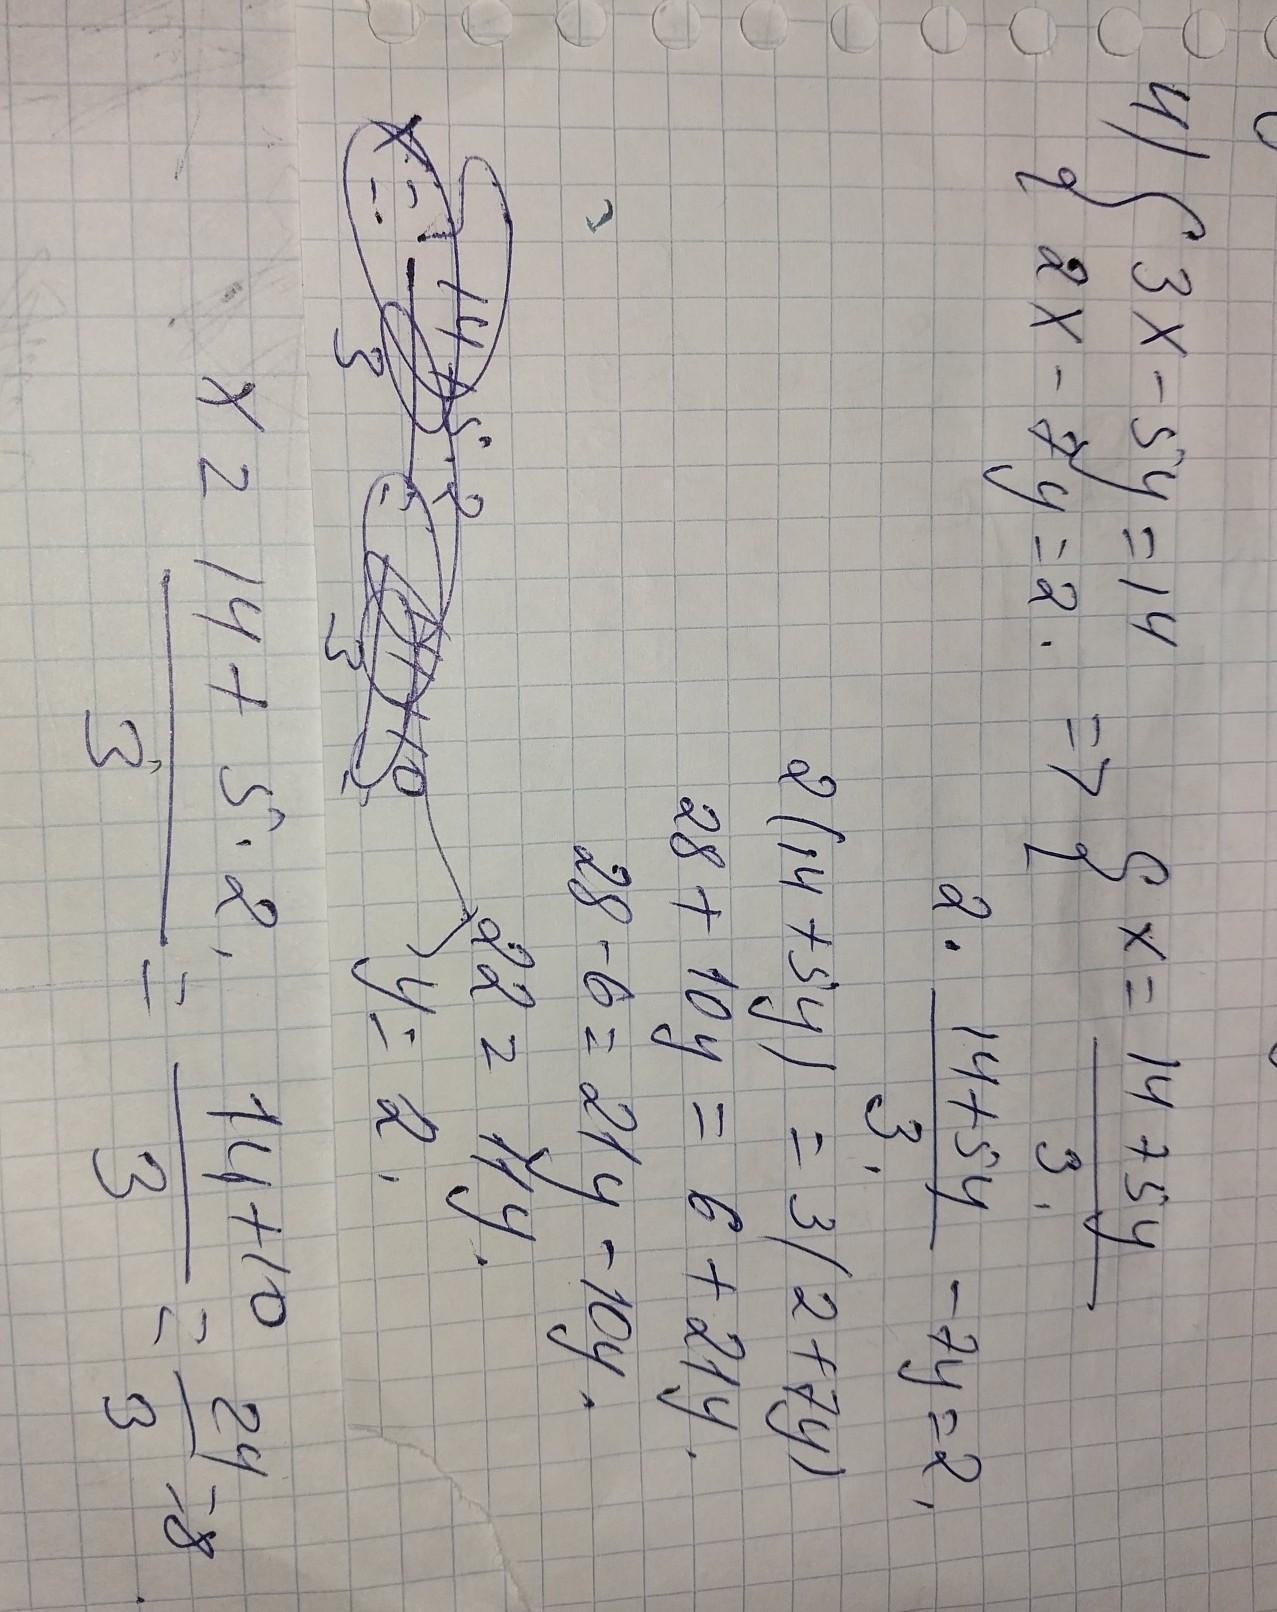 4) { 3x - 5y = 14 => { x = 14 + 5y / 3.
2x - 7y = 2.
2 · 14 + 5y / 3. - 7y = 2.
2(14 + 5y) = 3(2 + 7y)
28 + 10y = 6 + 21y.
28 - 6 = 21y - 10y.
22 = 11y.
y = 2.
x = 14 + 5 · 2. / 3 = 14 + 10 / 3 = 24 / 3 = 8.